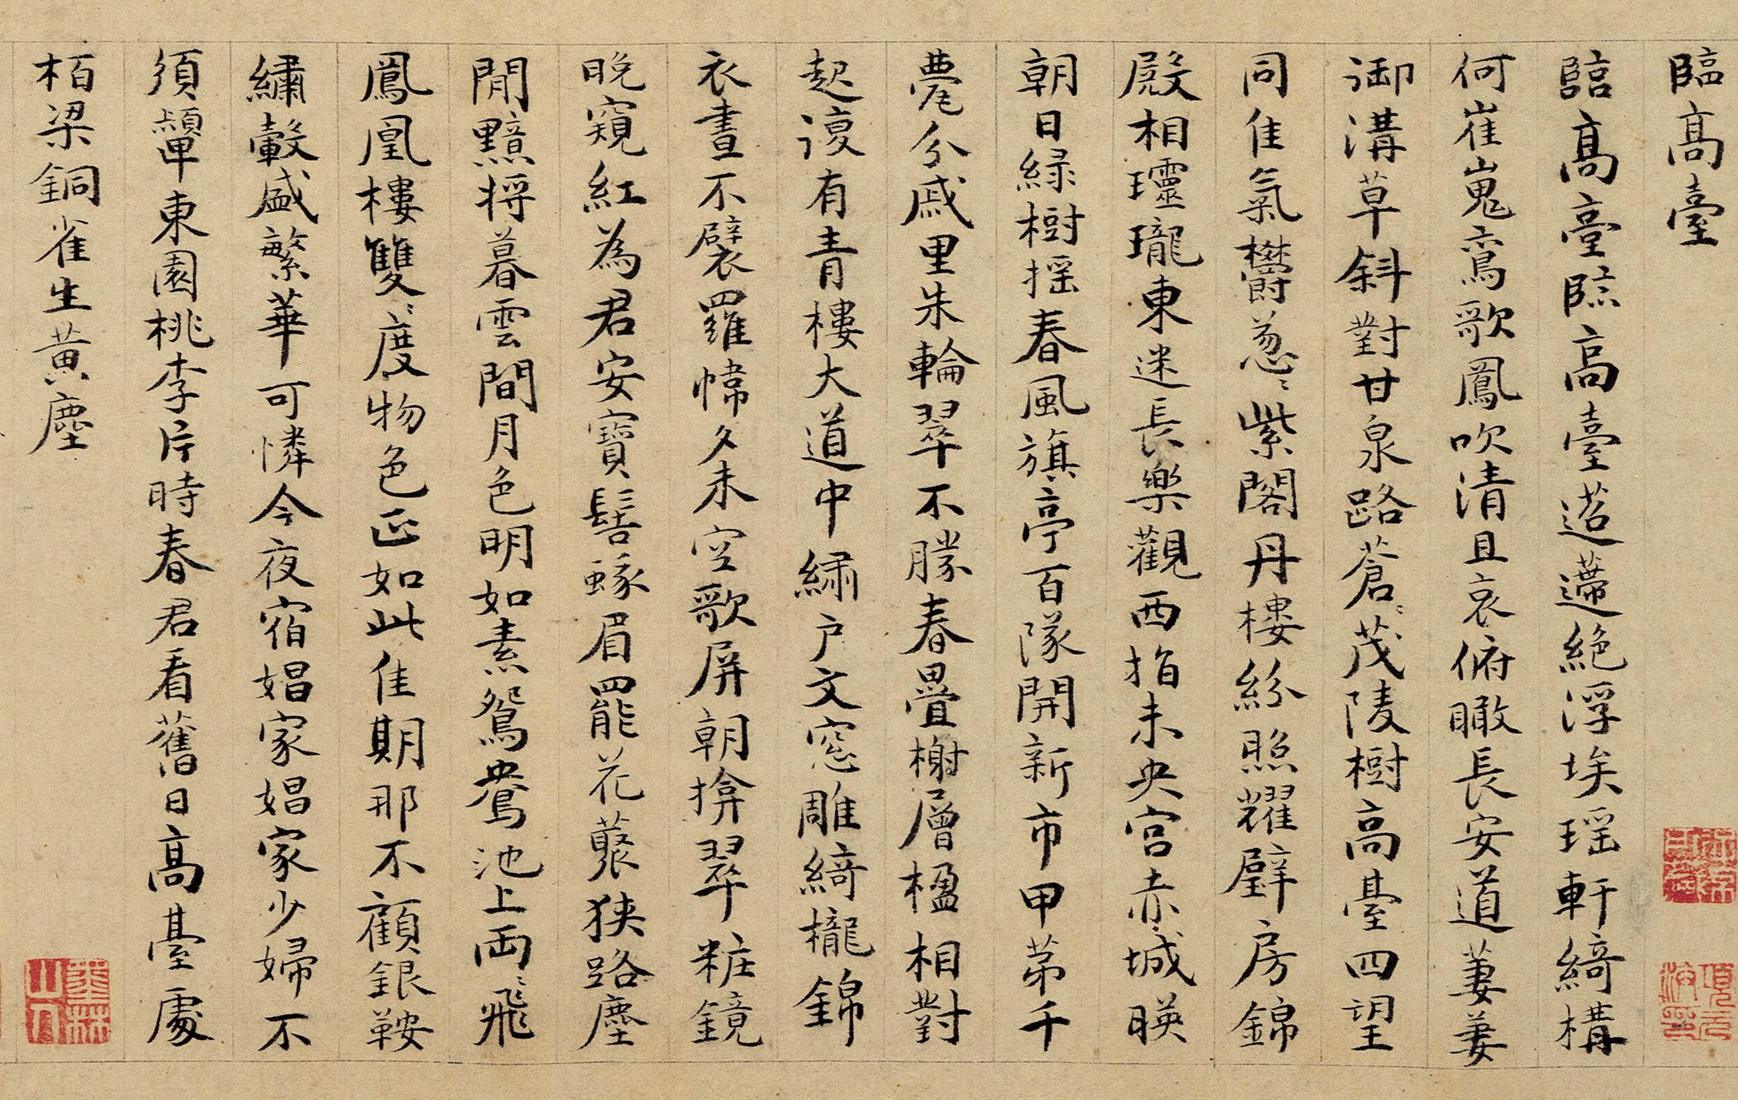 臨高臺
臨高臺臨高臺迢遰絕浮埃瑶軒綺構
何崔嵬鸞歌鳳吹清且哀俯瞰長安道萋萋
御溝草斜對甘泉路蒼〻茂陵樹高臺四望
同佳氣欝葱〻紫閣丹樓紛照耀壁房錦
殿相瓏瓏東迷長樂觀西指未央宫赤城暎
朝日緑樹揺春風旗亭百隊開新市甲苐千
甍分戚里朱輪翠不勝春疊榭層楹相對
起復有青樓大道中繡户文窓雕綺櫳錦
衣晝不襞羅幃夕未空歌屏朝掩翠粧鏡
晚窺紅為君安寶髻蛾眉罷花藂狭路塵
閒黯将暮雲間月色明如素鴛鴦池上兩〻飛
鳳凰樓雙〻度物色正如此佳期那不顧銀鞍
繡轂盛繁華可憐今夜宿娼家娼家少婦不
須顰東園桃李片時春君看舊日高臺處
栢梁銅雀生黄塵